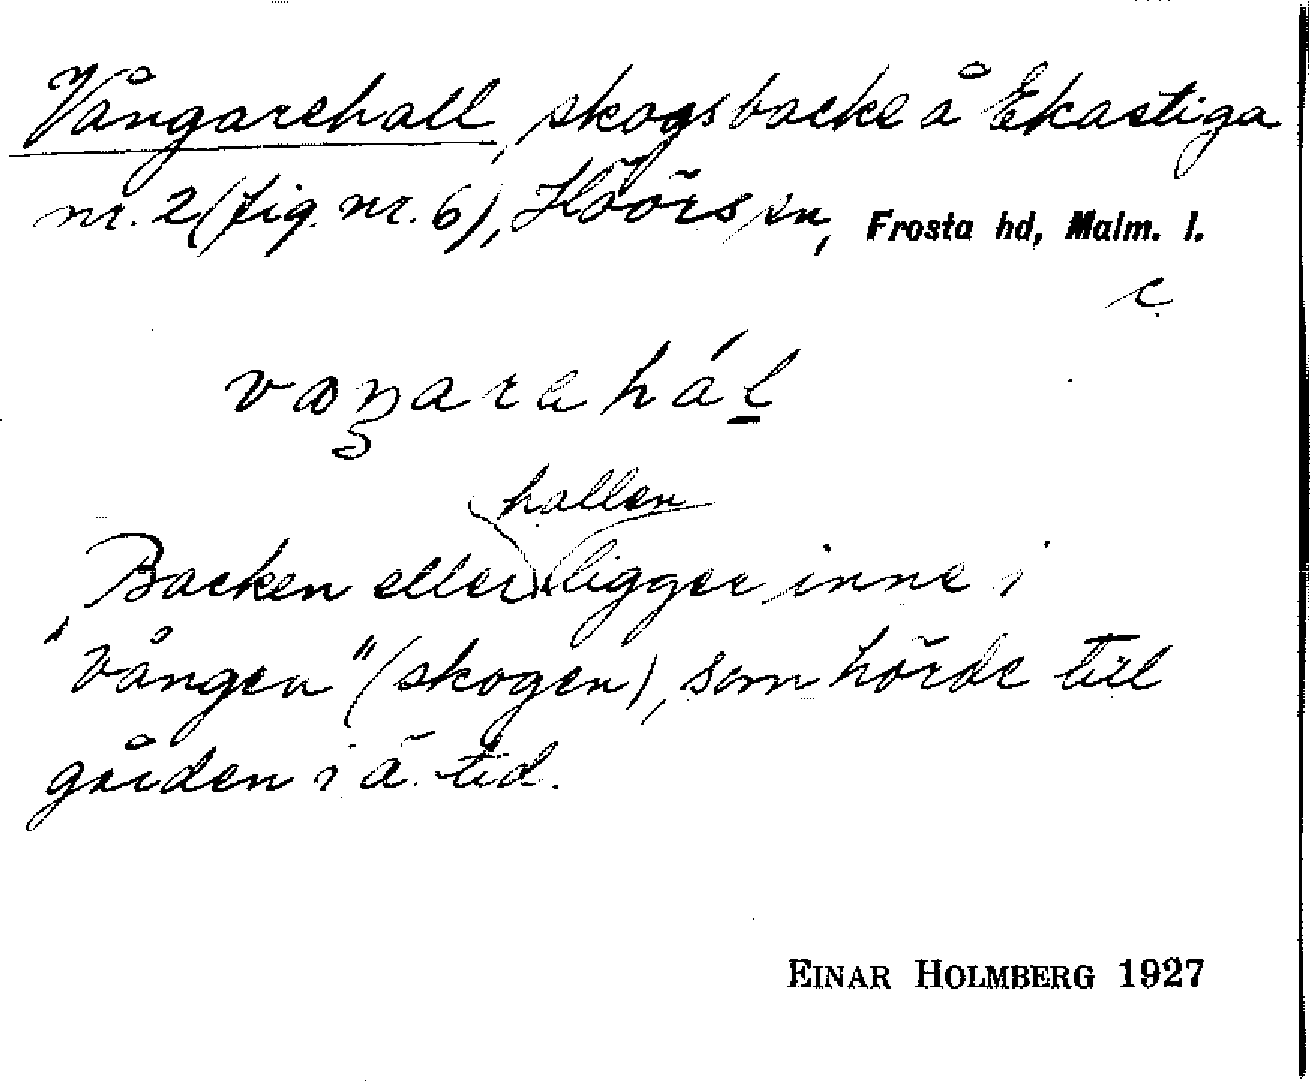 Vångarehall, skogsbacke å Ekastiga
nr. 2 (fig. nr. 6), Höörs sn, Frosta hd, Malm. l.
c
hallen
Backen eller ligger inne i
"Vången" (skogen), som hörde till
gården i ä. tid.
EINAR HOLMBERG 1927